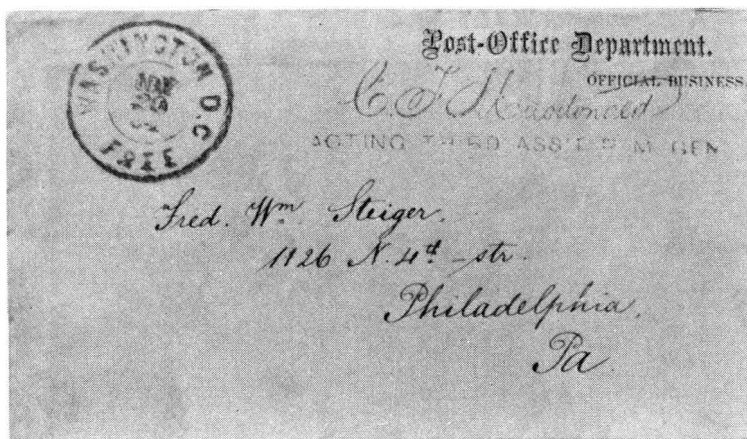 WASHINGTON D.C.
FREE
Post-Office Department.
OFFICIAL BUSINESS.
C. F. Macdonald
ACTING THIRD ASS'T P. M. GEN
Fred. Wm. Steiger.
1126 N. 4th - str.
Philadelphia,
Pa